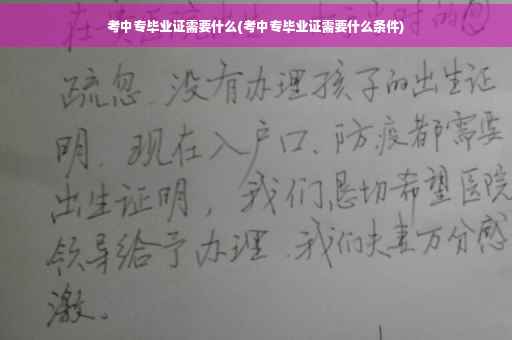 考中专毕业证需要什么(考中专毕业证需要什么条件)
疏忽、没有办理孩子的出生证
明、现在入户口、防疫都需要
出生证明，我们恳切希望医院
领导给予办理、我们夫妻万分感
激。